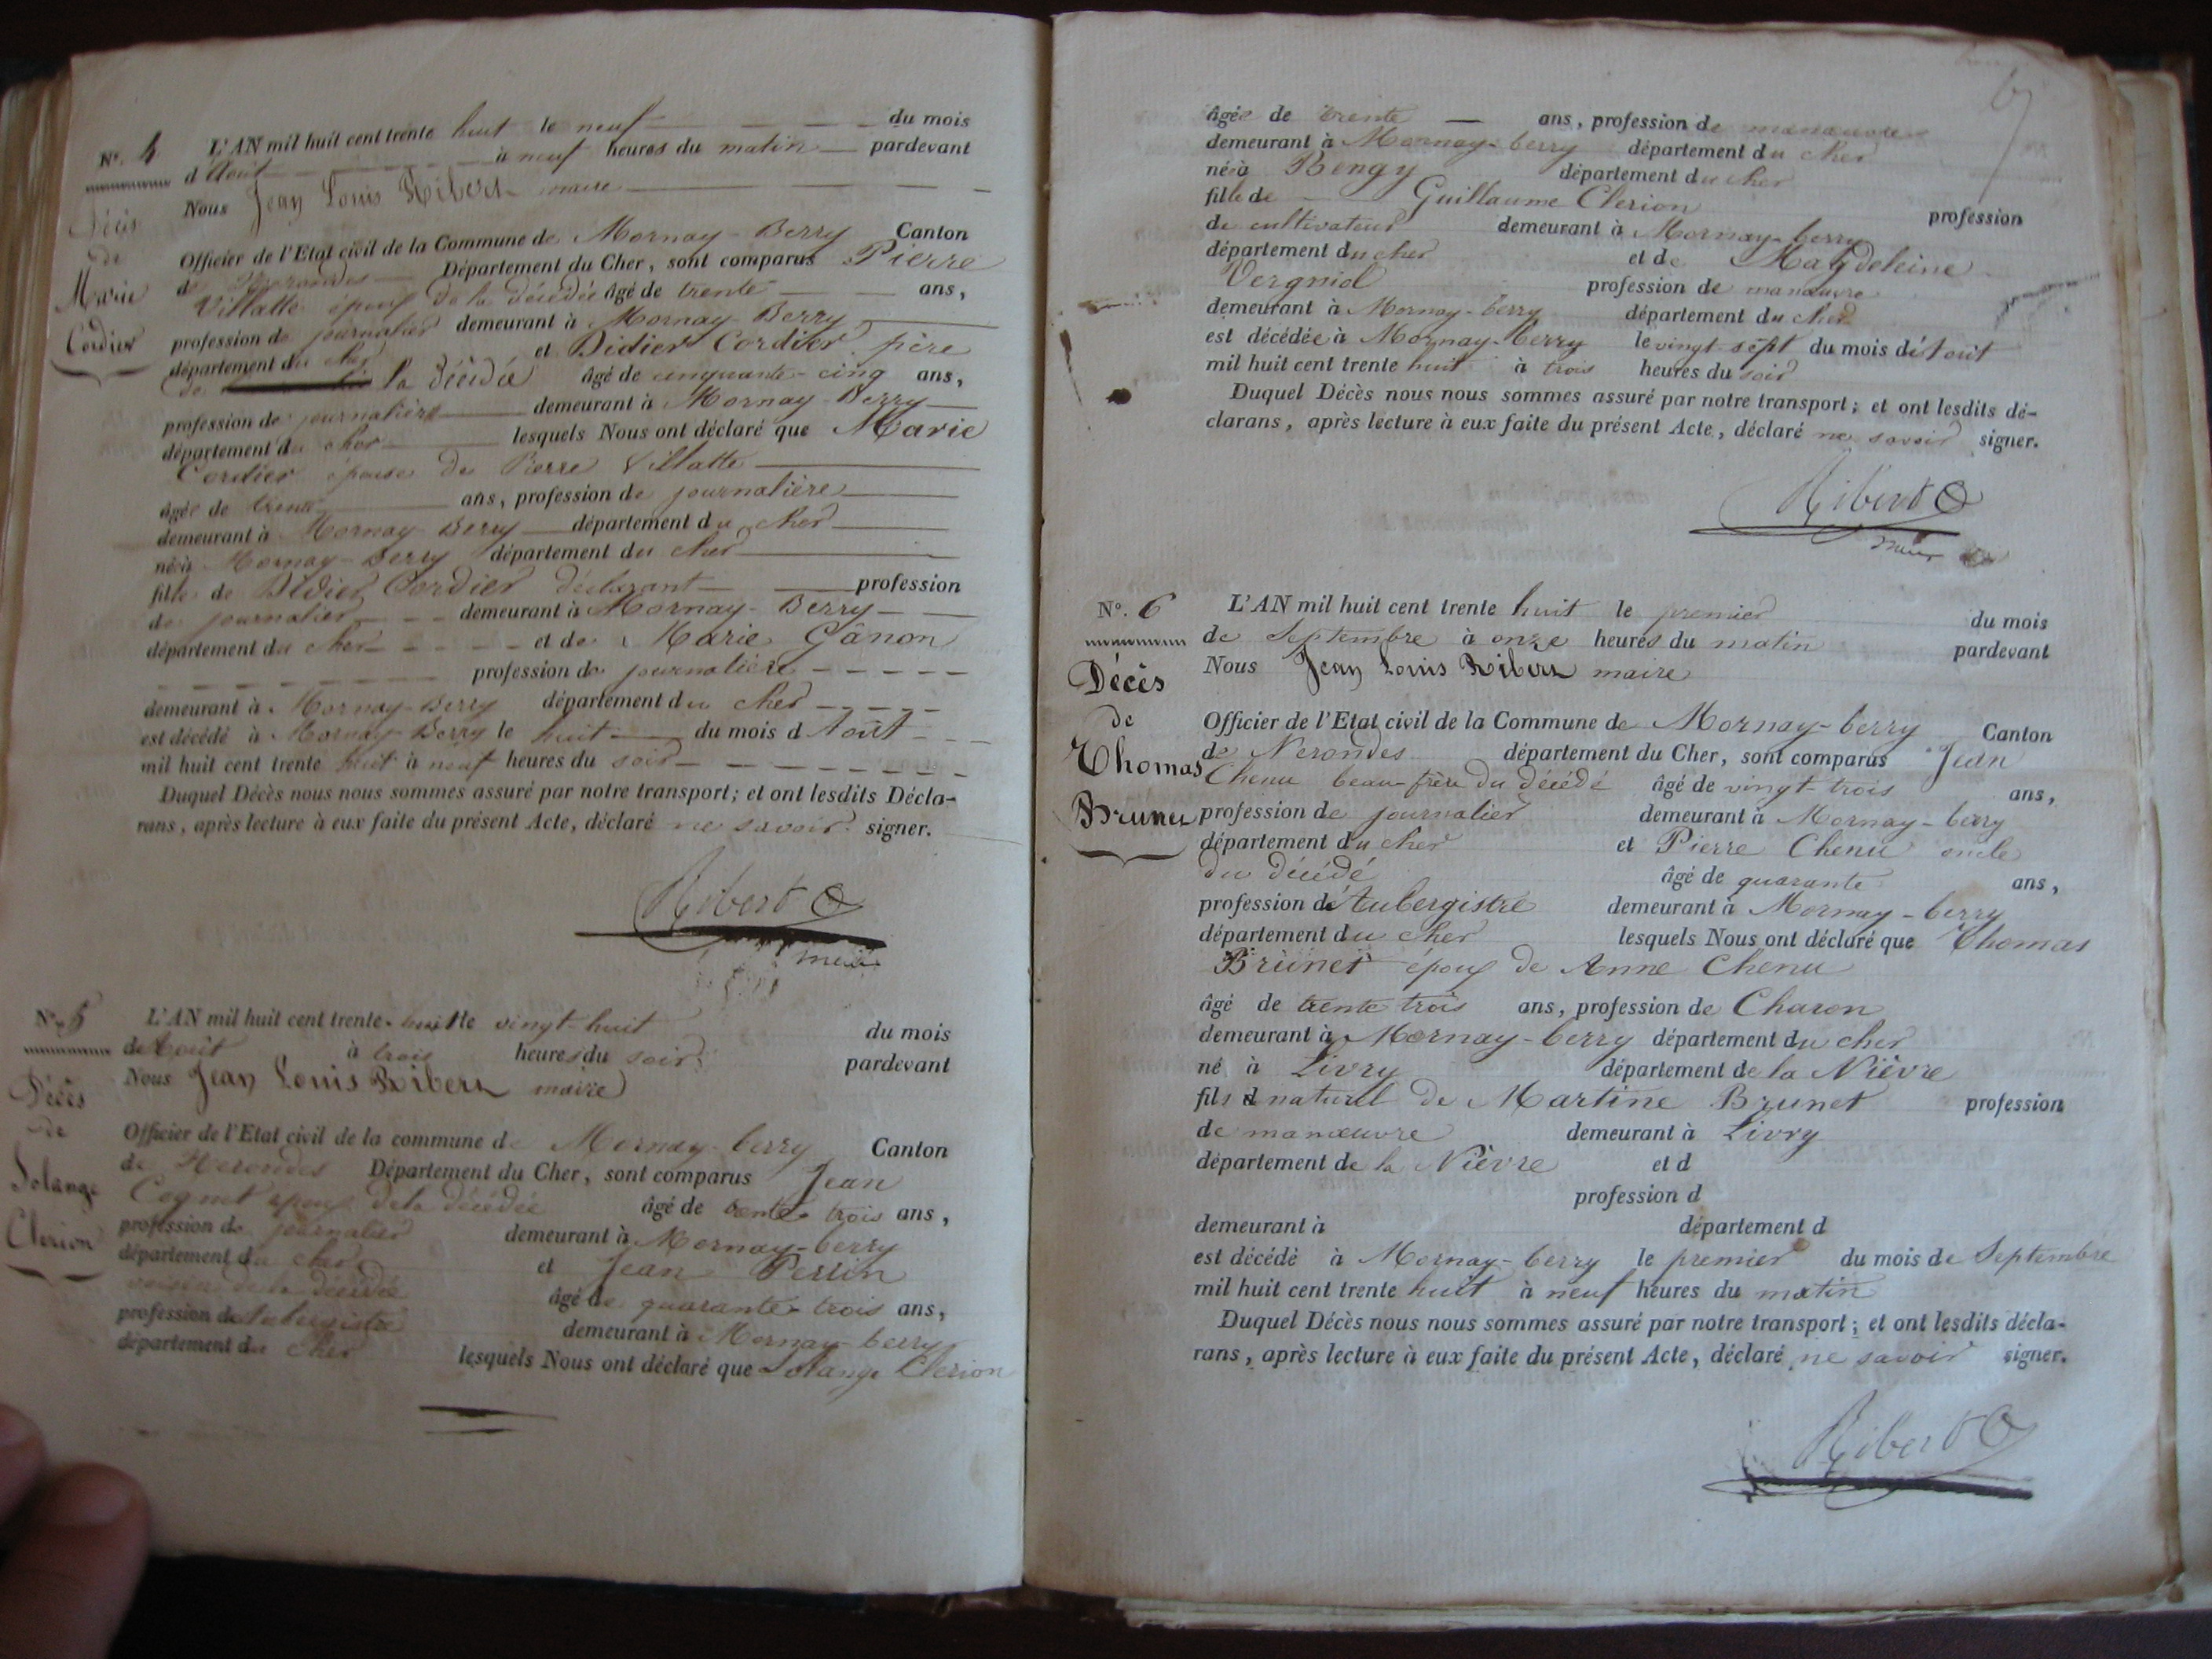 N°. 4
Décès
de
Marie
Cordier
L'AN mil huit cent trente huit le neuf du mois
d'Août à neuf heures du matin pardevant
Nous Jean Louis Ribert maire
Officier de l'Etat civil de la Commune de Mornay-Berry Canton
de Nerondes Département du Cher, sont comparus Pierre
Villatte époux de la décédée âgé de trente ans,
profession de journalier demeurant à Mornay-Berry
département du cher et Didier Cordier père
de la décédée âgé de cinquante-cinq ans,
profession de journalière demeurant à Mornay-Berry
département du cher lesquels Nous ont déclaré que Marie
Cordier épouse de Pierre Villatte
âgée de trente ans, profession de journalière
demeurant à Mornay-Berry département du cher
née à Mornay-Berry département du cher
fille de Didier Cordier déclarant profession
de journalier demeurant à Mornay-Berry
département du cher et de Marie Gânon
profession de journalière
demeurant à Mornay-Berry département du cher
est décédé à Mornay-Berry le huit du mois d'Août
mil huit cent trente huit à neuf heures du soir
Duquel Décès nous nous sommes assuré par notre transport; et ont lesdits Décla-
rans, après lecture à eux faite du présent Acte, déclaré ne savoir signer.
Ribert
maire
N°. 5
Décès
de
Solange
Clerion
L'AN mil huit cent trente-huit le vingt-huit du mois
de Août à trois heures du soir pardevant
Nous Jean Louis Ribert maire
Officier de l'Etat civil de la commune de Mornay-berry Canton
de Nerondes Département du Cher, sont comparus Jean
époux de la décédée âgé de trente trois ans,
profession de journalier demeurant à Mornay-berry
département du cher et Jean Perrin
voisin de la décédée âgé de quarante-trois ans,
profession de Aubergiste demeurant à Mornay-berry
département du cher lesquels Nous ont déclaré que Solange Clerion
âgée de trente ans, profession de manœuvre
demeurant à Mornay-berry département du cher
née à Bengy département du cher
fille de Guillaume Clerion profession
de cultivateur demeurant à Mornay-berry
département du cher et de Magdeleine
Vergniol profession de manœuvre
demeurant à Mornay-berry département du cher
est décédée à Mornay-berry le vingt-sept du mois d'Août
mil huit cent trente huit à trois heures du soir
Duquel Décès nous nous sommes assuré par notre transport; et ont lesdits dé-
clarans, après lecture à eux faite du présent Acte, déclaré ne savoir signer.
Ribert
maire
N°. 6
Décès
de
Thomas
Brunet
L'AN mil huit cent trente huit le premier du mois
de Septembre à onze heures du matin pardevant
Nous Jean Louis Ribert maire
Officier de l'Etat civil de la Commune de Mornay-berry Canton
de Nerondes département du Cher, sont comparus Jean
Chenu beau-frère du décédé âgé de vingt-trois ans,
profession de journalier demeurant à Mornay-berry
département du cher et Pierre Chenu oncle
du décédé âgé de quarante ans,
profession d'Aubergistre demeurant à Mornay-berry
département du cher lesquels Nous ont déclaré que Thomas
Brunet époux de Anne Chenu
âgé de trente trois ans, profession de Charon
demeurant à Mornay-berry département du cher
né à Livry département de la Nièvre
fils naturel de Martine Brunet profession
de manœuvre demeurant à Livry
département de la Nièvre et d
profession d
demeurant à département d
est décédé à Mornay-berry le premier du mois de Septembre
mil huit cent trente huit à neuf heures du matin
Duquel Décès nous nous sommes assuré par notre transport; et ont lesdits décla-
rans, après lecture à eux faite du présent Acte, déclaré ne savoir signer.
Ribert